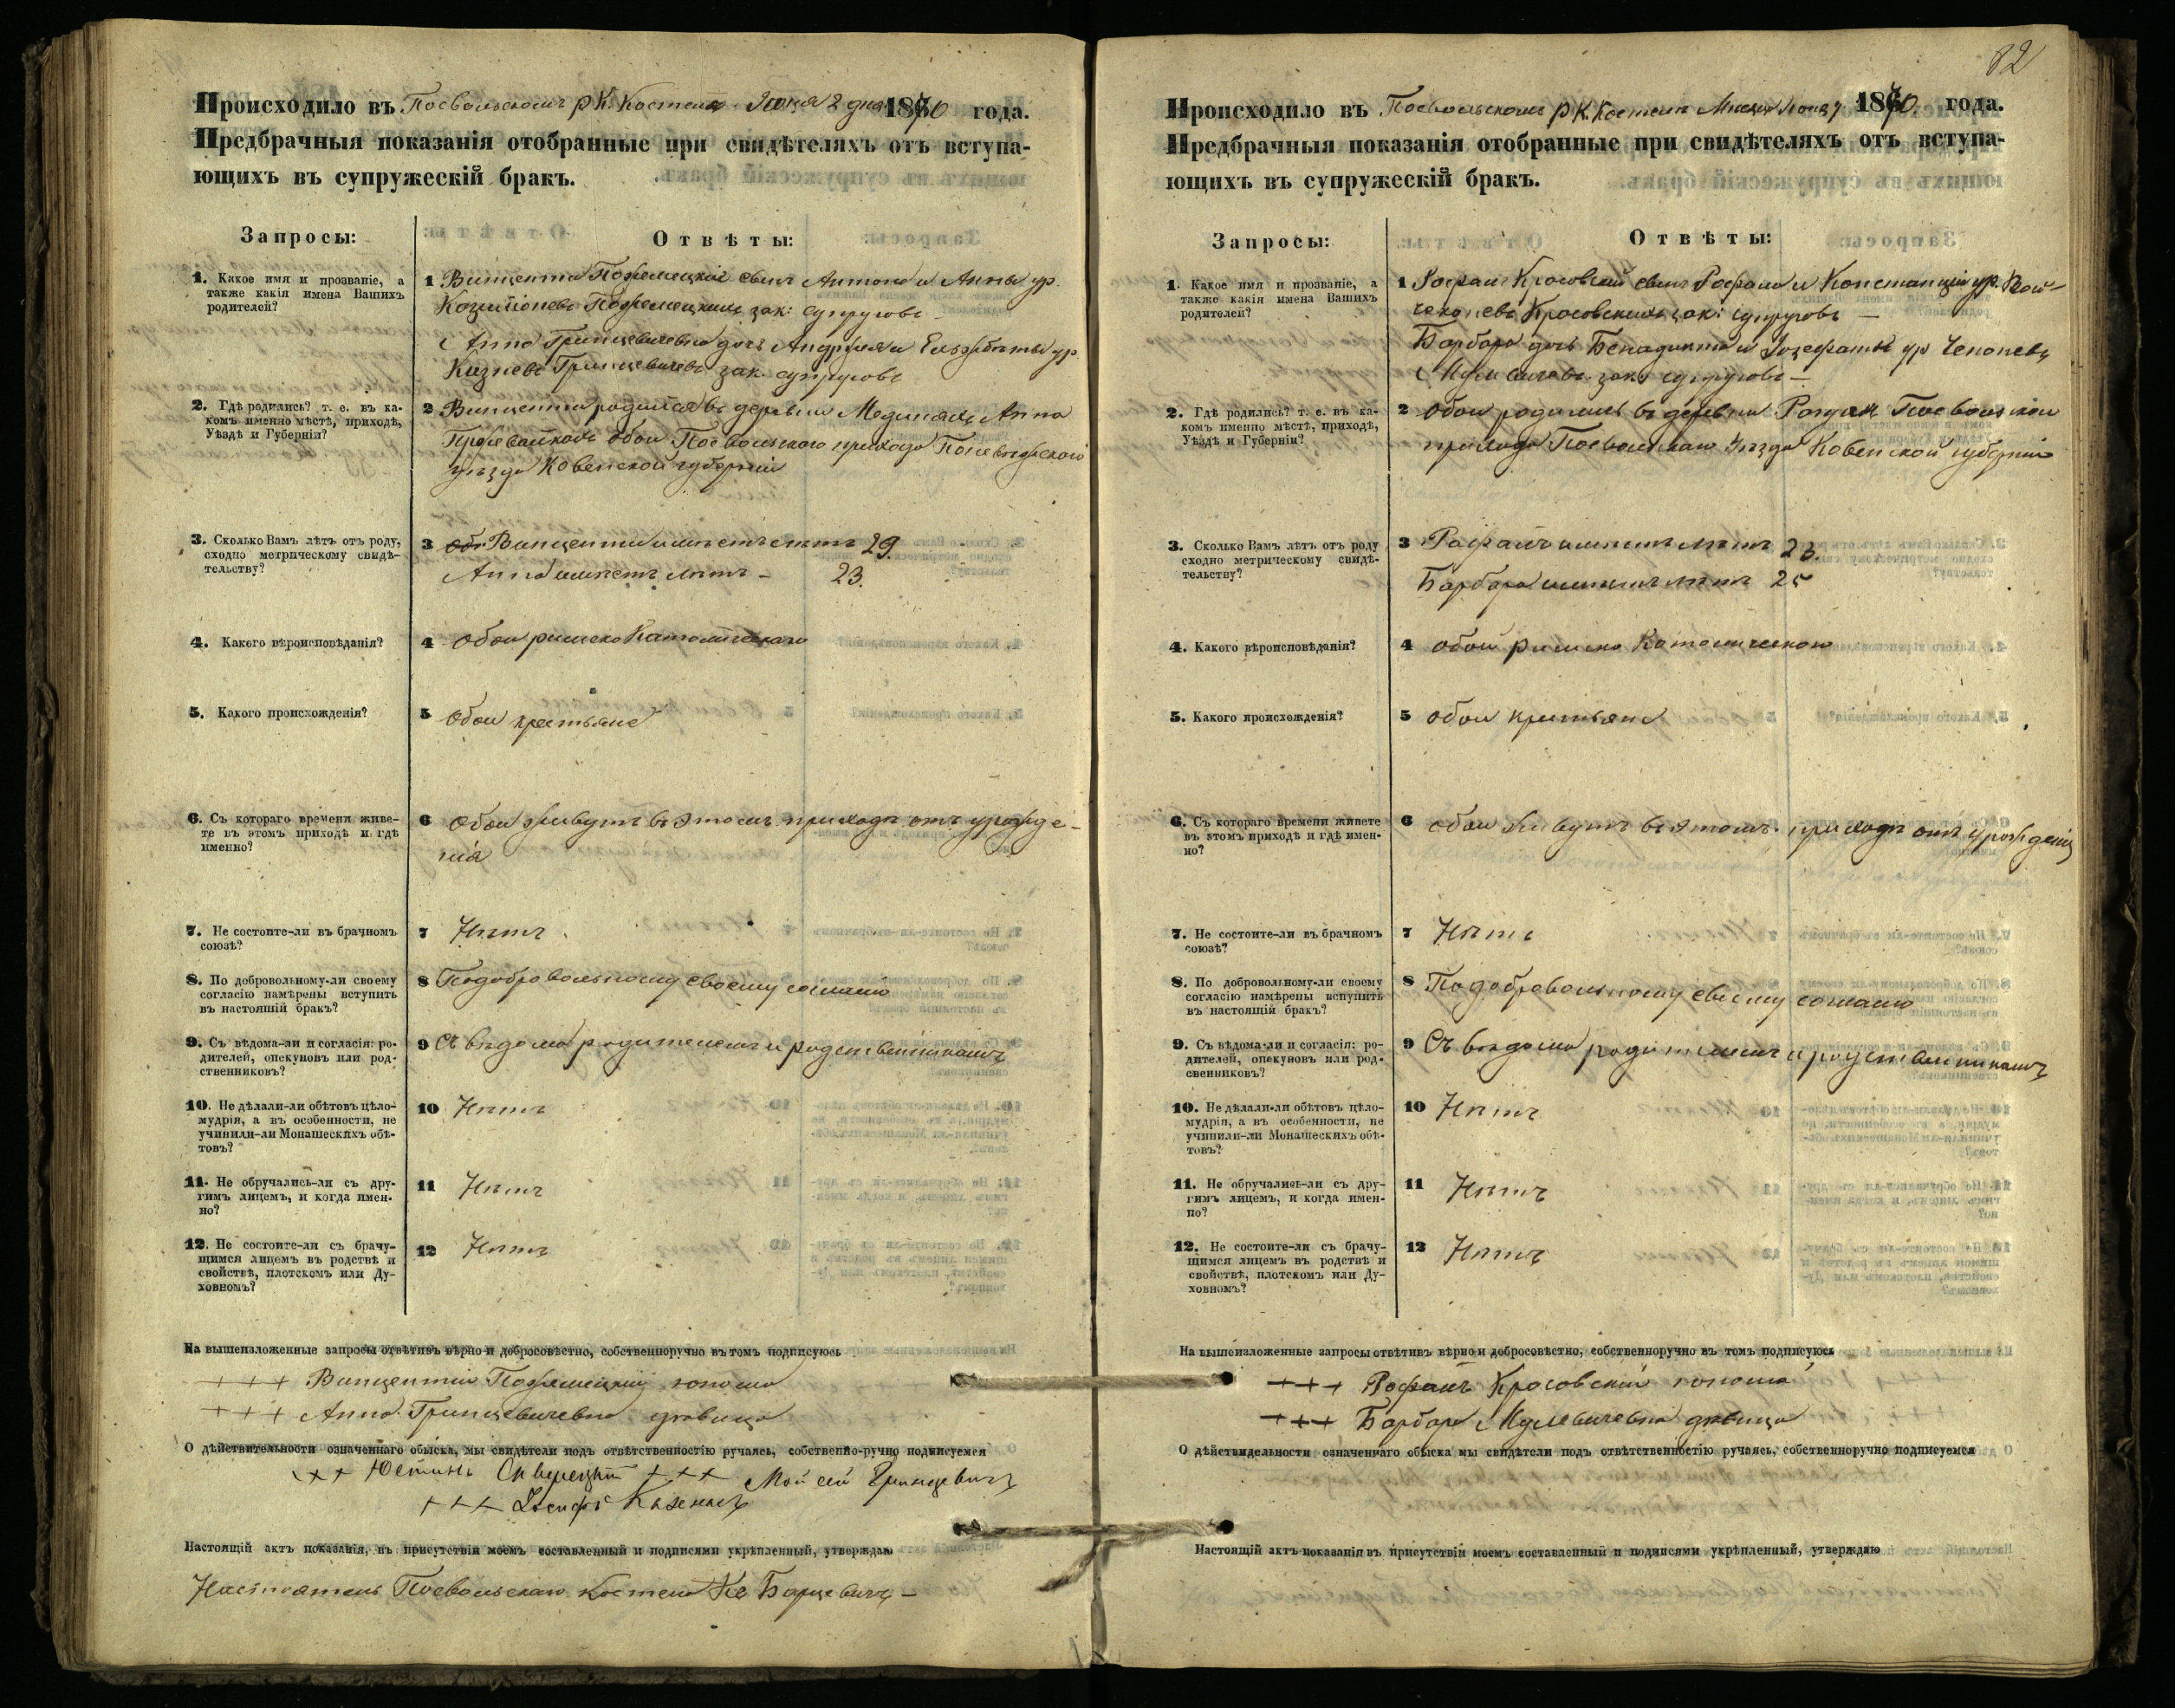 Происходило въ Посвольскомъ р. К. Костелѣ Июня 2 дня 1870 года.
Предбрачныя показанія отобранные при свидѣтеляхъ отъ вступа-
ющихъ въ супружескій бракъ.
Запросы:
Отвѣты:
1. Какое имя и прозваніе, а
также какія имена Вашихъ
родителей?
1 Винцентій сынъ Антона и Анны ур.
зак: супруговъ
Анна Гринцевичевна дочь Андрея и Ельжбѣты ур.
Гринцевичевъ зак. супруговъ
2. Гдѣ родились? т. е. въ ка-
комъ именно мѣстѣ, приходѣ,
Уѣздѣ и Губерніи?
2 Винцентій родился въ деревни Анна
обои Посвольского прихода Поневѣжскаго
уѣзда Ковенской губерніи
3. Сколько Вамъ лѣтъ отъ роду,
сходно метрическому свидѣ-
тельству?
3 Винцентій имѣетъ лѣтъ 29.
Анна имѣетъ лѣтъ – 23.
4. Какого вѣроисповѣданія?
4 Обои римско Католическаго
5. Какого происхожденія?
5 Обои крестьяне
6. Съ котораго времени живе-
те въ этомъ приходѣ и гдѣ
именно?
6 Обои живутъ въ этомъ приходѣ отъ урожде-
нія
7. Не состоите-ли въ брачномъ
союзѣ?
7 Нѣтъ
8. По добровольному-ли своему
согласію намѣрены вступить
въ настоящій бракъ?
8 По добровольному своему согласію
9. Съ вѣдома-ли и согласія: ро-
дителей, опекуновъ или род-
ственниковъ?
9 Съ вѣдома родителей и родственниковъ
10. Не дѣлали-ли обѣтовъ цѣло-
мудрія, а въ особенности, не
учинили-ли Монашескихъ обѣ-
товъ?
10 Нѣтъ
11. Не обручались-ли съ дру-
гимъ лицемъ, и когда имен-
но?
11 Нѣтъ
12. Не состоите-ли съ брачу-
щимся лицемъ въ родствѣ и
свойствѣ, плотскомъ или Ду-
ховномъ?
12 Нѣтъ
На вышеизложенные запросы отвѣтивъ вѣрно и добросовѣстно, собственноручно въ томъ подписуюсь
+++ Винцентій юноша
+++ Анна Гринцевичевна дѣвица
О дѣйствительности означеннаго обыска, мы свидѣтели подъ отвѣтственностію ручаясь, собственно-ручно подписуемся
+++ Юстинъ +++ Мойсей Гринцевичъ
+++ Іосифъ
Настоящій актъ показанія, въ присутствіи моемъ составленный и подписями укрѣпленный, утверждаю
Настоятель Посвольскаго костела Кс. Барцевичъ –
82
Происходило въ Посвольскомъ р. К. Костелѣ Мѣсяца Июня 7 1870 года.
Предбрачныя показанія отобранные при свидѣтеляхъ отъ вступа-
ющихъ въ супружескій бракъ.
Запросы:
Отвѣты:
1. Какое имя и прозваніе, а
также какія имена Вашихъ
родителей?
1 Рафаилъ Красовскій сынъ Рафала и Констанціи ур.
Красовскихъ зак: супруговъ –
Барбара дочь Бенадикта и Іозефаты ур Чепоневъ
зак: супруговъ –
2. Гдѣ родились? т. е. въ ка-
комъ именно мѣстѣ, приходѣ,
Уѣздѣ и Губерніи?
2 Обои родились въ деревни Посвольскаго
прихода уѣзда Ковенской губерніи
3. Сколько Вамъ лѣтъ отъ роду
сходно метрическому свидѣ-
тельству?
3 Рафаилъ имѣетъ лѣтъ 23.
Барбара имѣетъ лѣтъ 25
4. Какого вѣроисповѣданія?
4 Обои римско Католическаго
5. Какого происхожденія?
5 Обои крестьяне
6. Съ котораго времени живете
въ этомъ приходѣ и гдѣ имен-
но?
6 Обои живутъ въ этомъ приходѣ отъ урожденія
7. Не состоите-ли въ брачномъ
союзѣ?
7 Нѣтъ
8. По добровольному-ли своему
согласію намѣрены вступить
въ настоящій бракъ?
8 По добровольному своему согласію
9. Съ вѣдома-ли и согласія: ро-
дителей, опекуновъ или род-
свенниковъ?
9 Съ вѣдома родителей и родственниковъ
10. Не дѣлали-ли обѣтовъ цѣло-
мудрія, а въ особенности, не
учинили-ли Монашескихъ обѣ-
товъ?
10 Нѣтъ
11. Не обручались-ли съ дру-
гимъ лицемъ, и когда имен-
но?
11 Нѣтъ
12. Не состоите-ли съ брачу-
щимся лицемъ въ родствѣ и
свойствѣ, плотскомъ или Ду-
ховномъ?
12 Нѣтъ
На вышеизложенные запросы отвѣтивъ вѣрно и добросовѣстно, собственноручно въ томъ подписуюсь
+++ Рафаилъ Красовскій юноша
+++ Барбара дѣвица
О дѣйствидельности означеннаго обыска мы свидѣтели подъ отвѣтственностію ручаясь, собственноручно подписуемся
Настоящій актъ показанія въ присутствіи моемъ составленный и подписями укрѣпленный, утверждаю